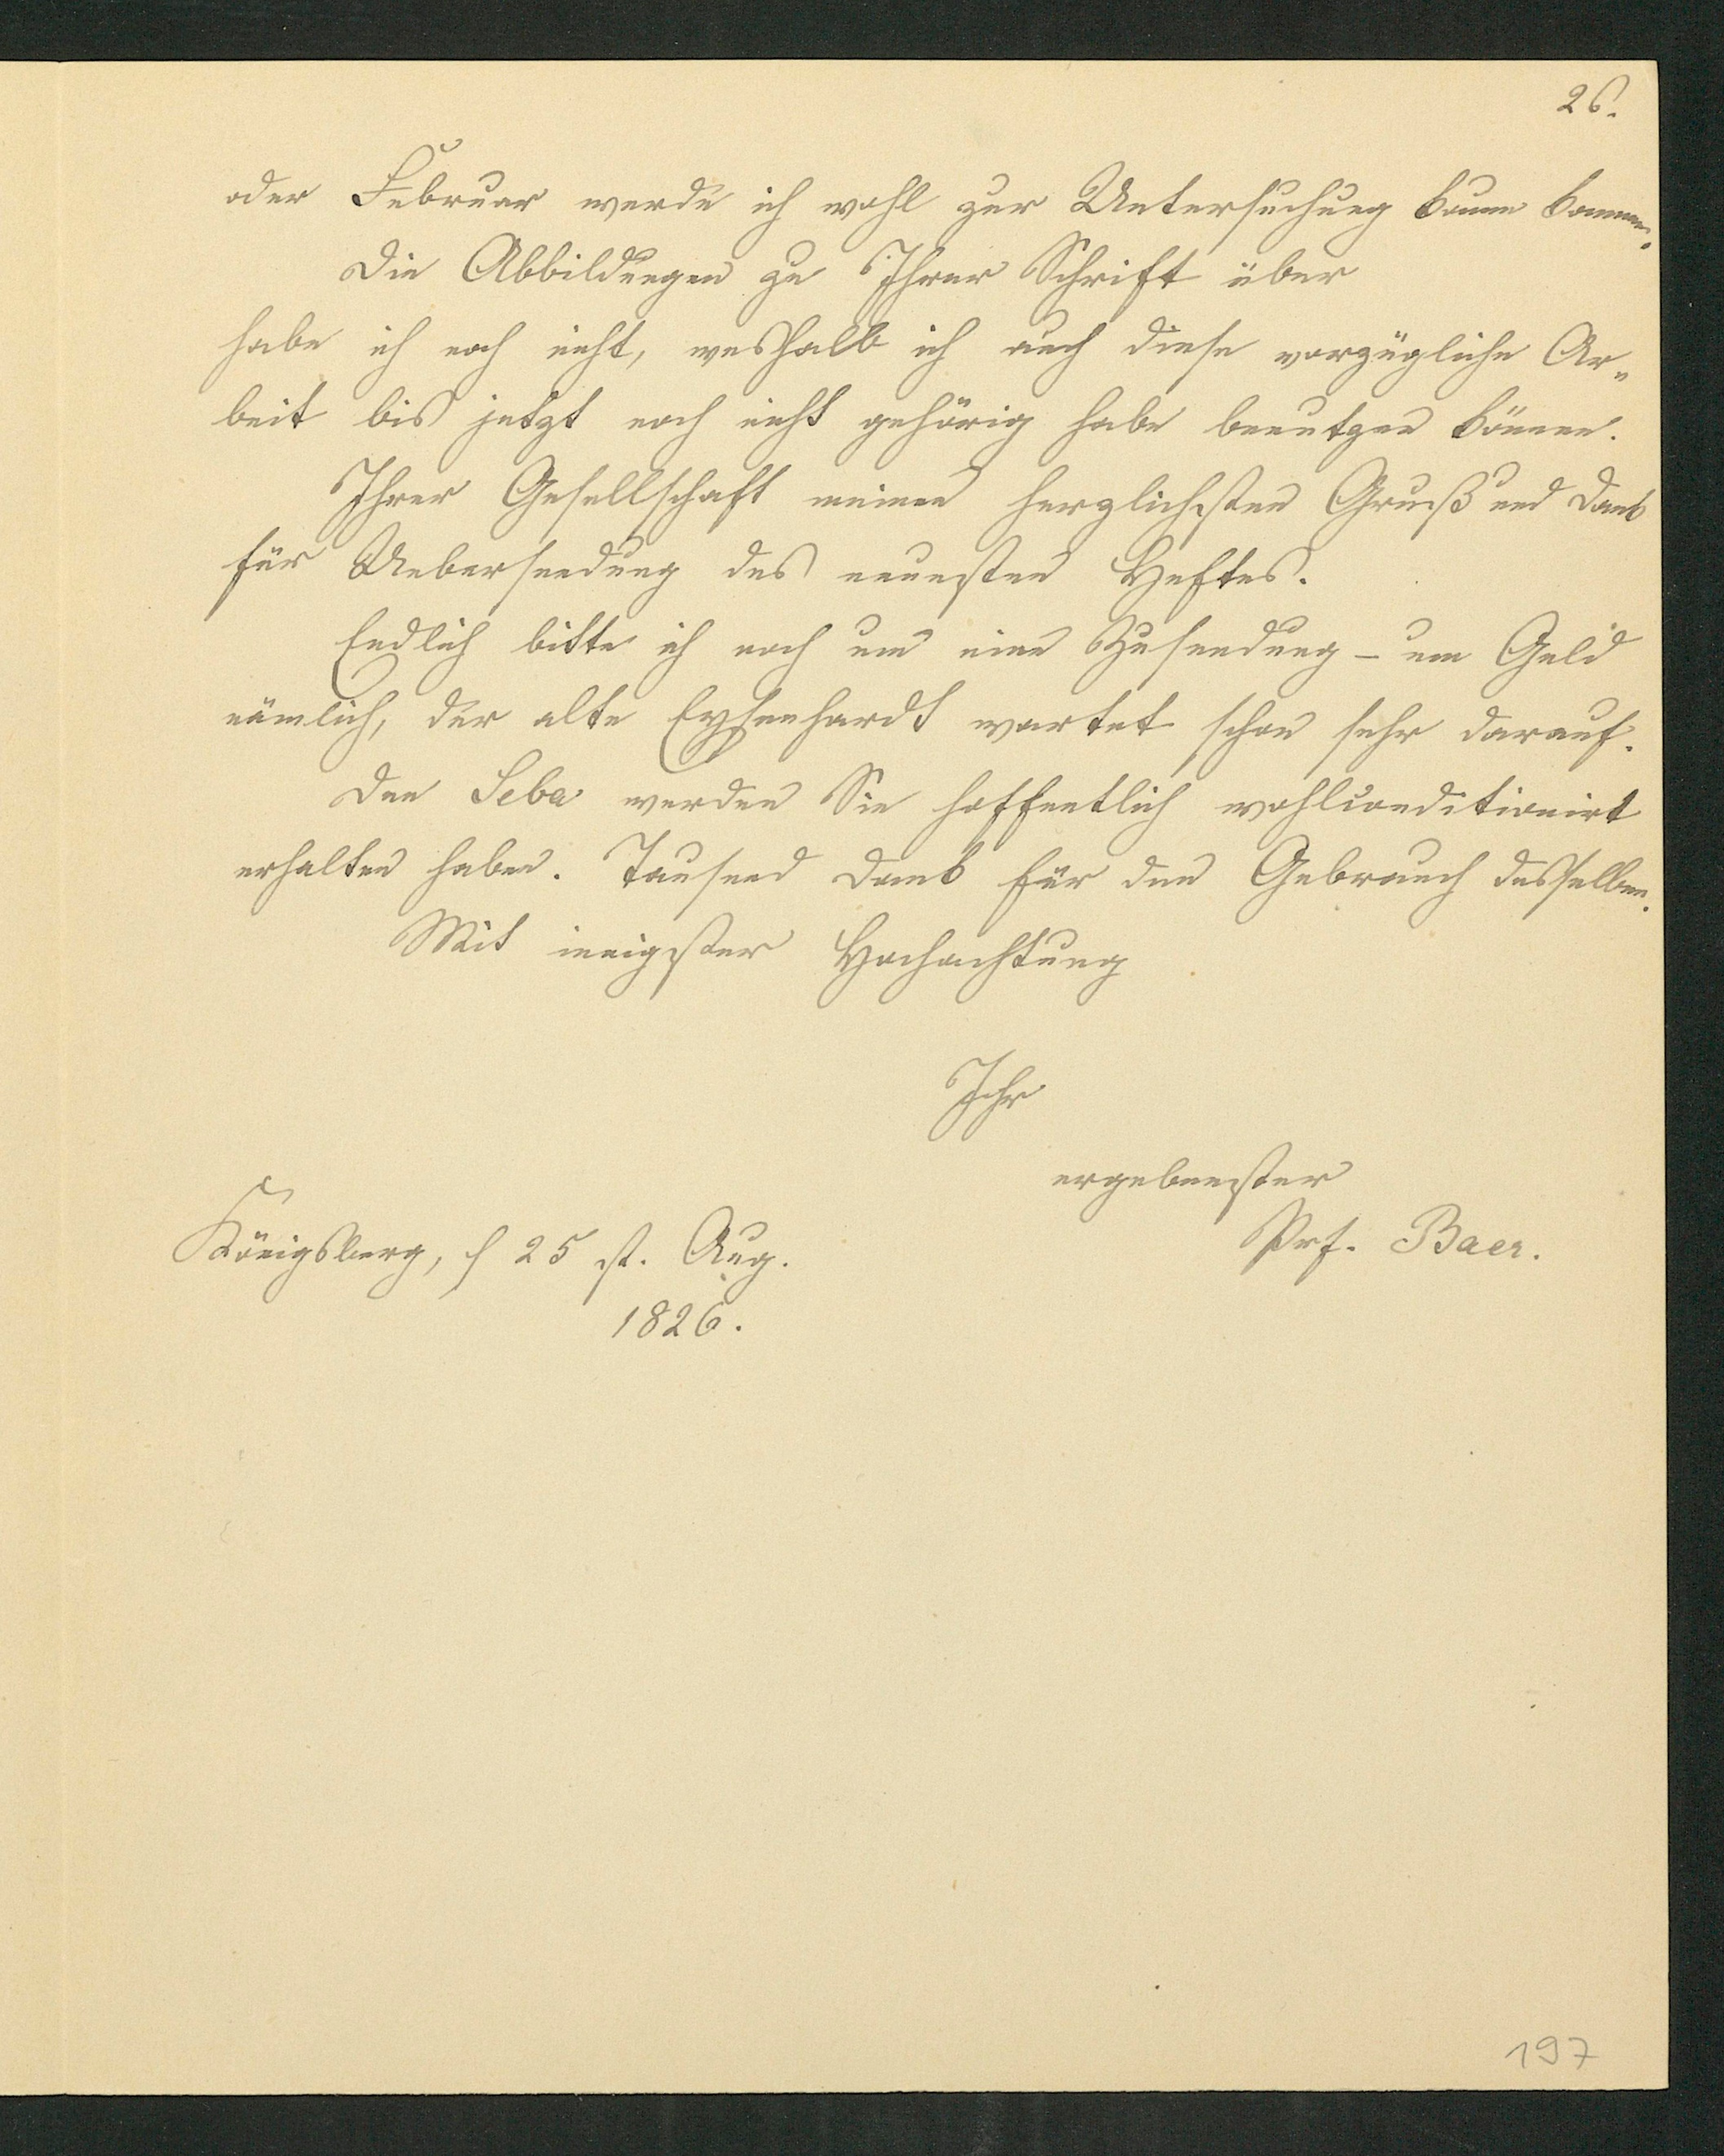 26.
oder Februar werde ich wohl zur Untersuchung kaum kommen.
Die Abbildungen zu Ihrer Schrift über
habe ich noch nicht, weshalb ich auch diese vorzügliche Ar-
beit bis jetzt noch nicht gehörig habe benutzen können.
Ihrer Gesellschaft meinen herzlichsten Gruß und Dank
für Uebersendung des neuesten Heftes.
Endlich bitte ich noch um eine Zusendung – um Geld
nämlich, der alte Eysenhardt wartet schon sehr darauf.
Den Seba werden Sie hoffentlich wohlconditionirt
erhalten haben. Tausend Dank für den Gebrauch desselben.
Mit innigster Hochachtung
Ihr
ergebenster
Prf. Baer.
Königsberg, d 25 st. Aug.
1826.
197